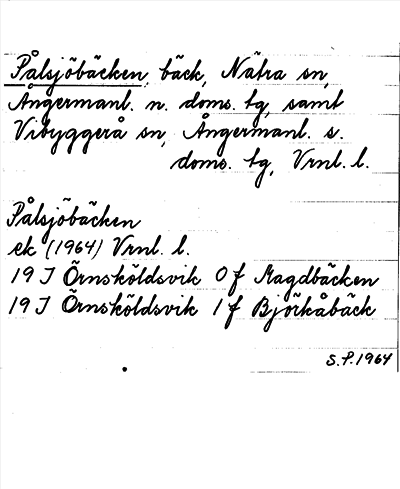 Pålsjöbäcken, bäck, Nätra sn,
Ångermanl. n. doms. tg, samt
Vibyggerå sn, Ångermanl. s.
doms. tg, Vrnl. l.
Pålsjöbäcken
ek (1964) Vrnl. l.
19 J Örnsköldsvik 0 f Magdbäcken
19 J Örnsköldsvik 1 f Björkåbäck
S.P. 1964